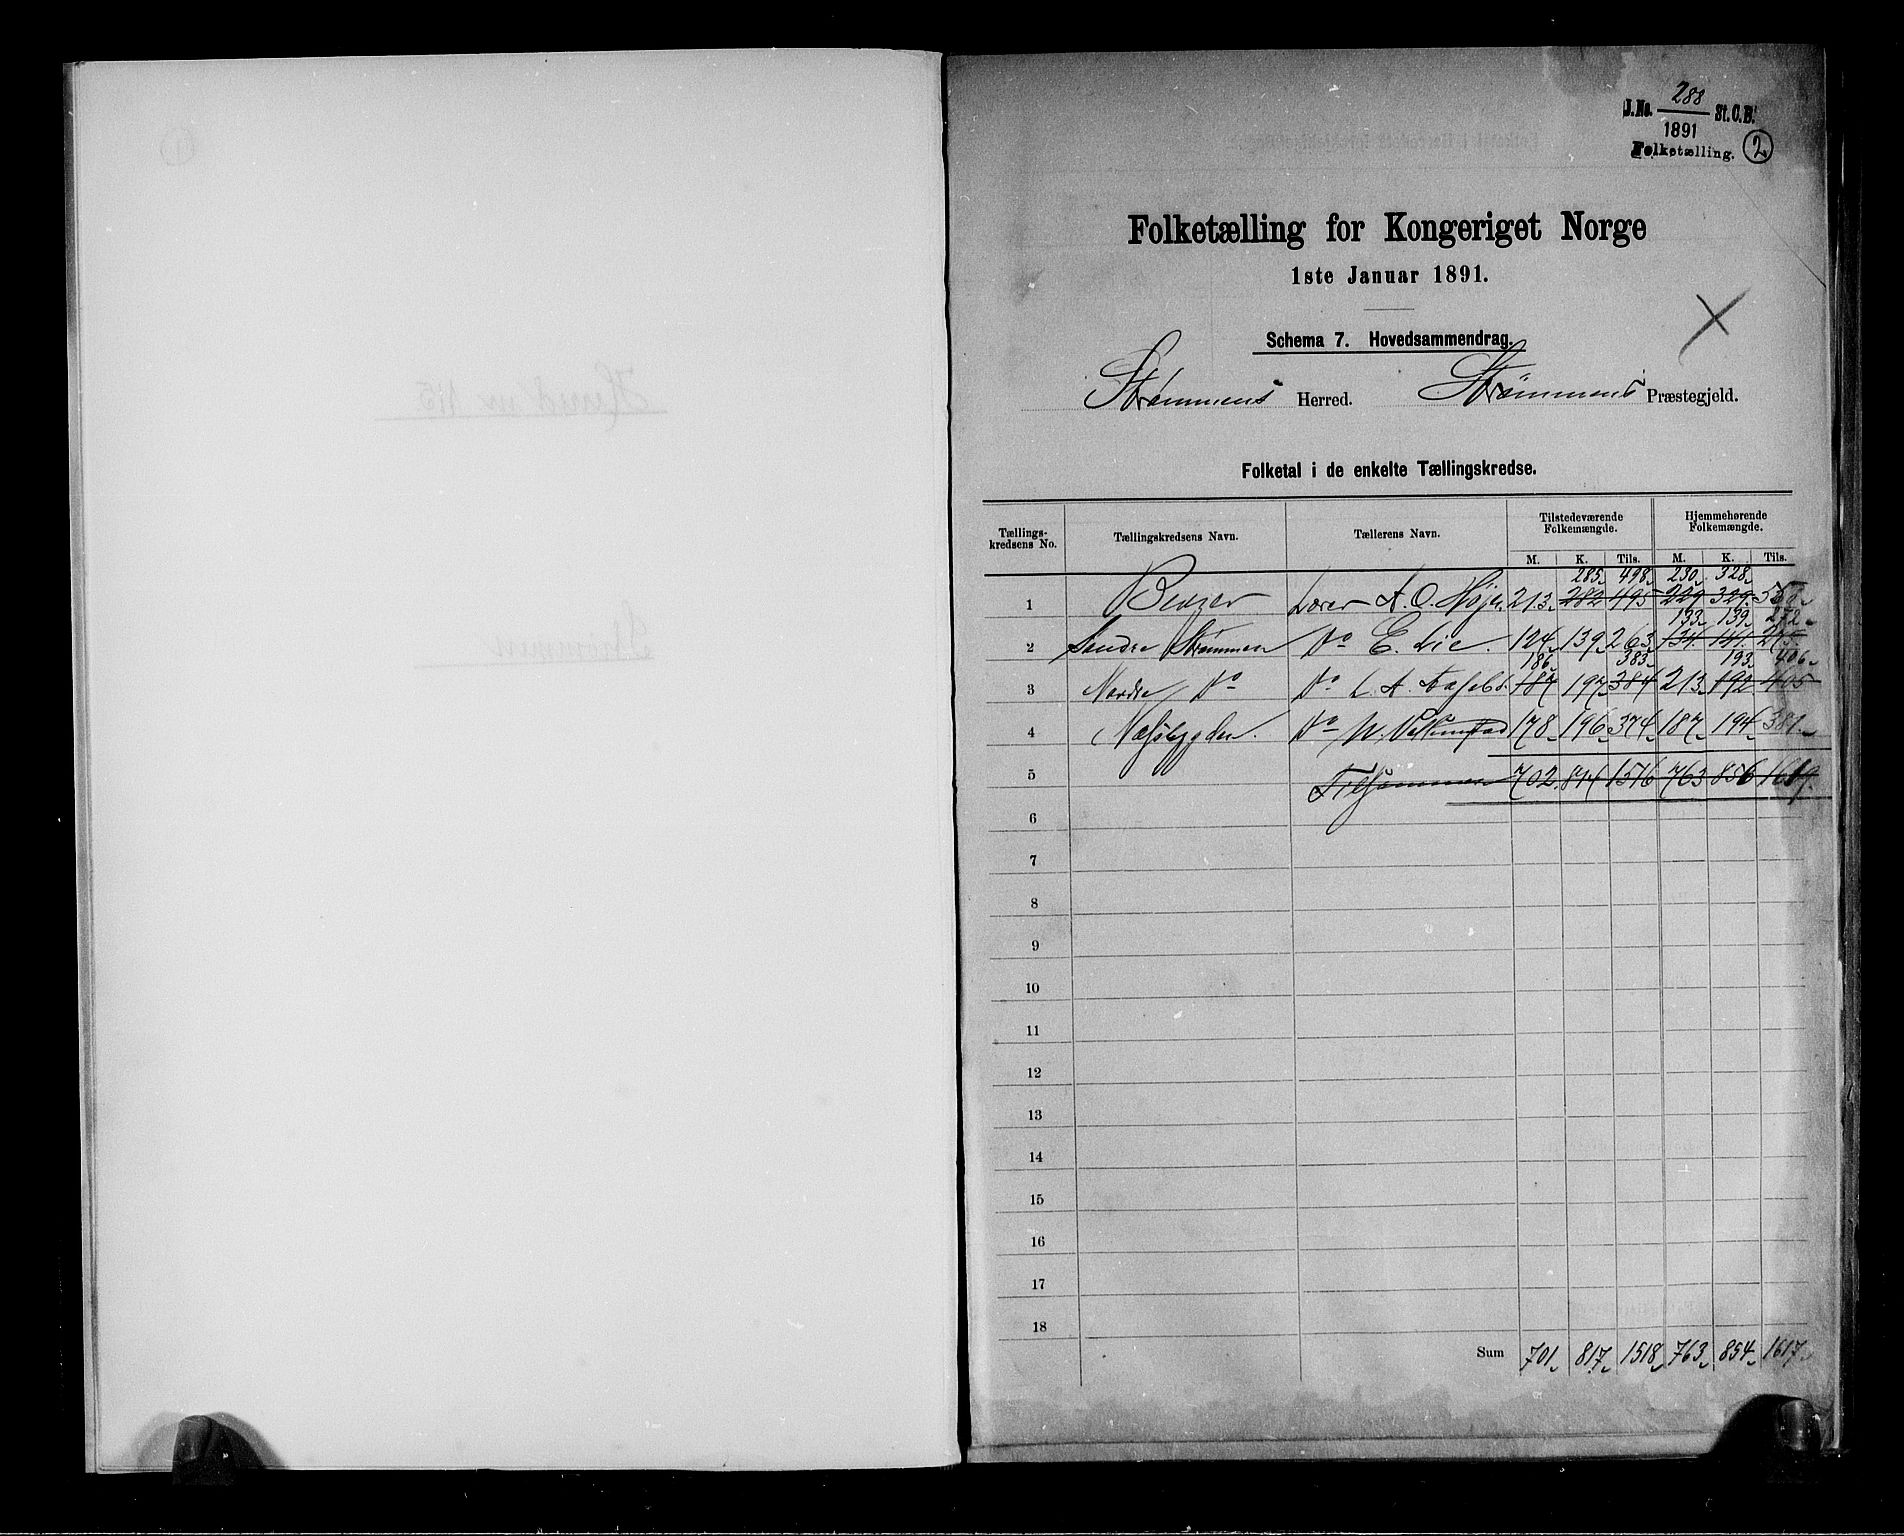 J.No. 288 St.C.B.
1891
Folketælling. 2
Folketælling for Kongeriget Norge
1ste Januar 1891.
Schema 7. Hovedsammendrag.
Strømmens Herred. Strømmens Præstegjeld.
Folketal i de enkelte Tællingskredse.
Tællings-kredsens No. Tællingskredsens Navn. Tællerens Navn. Tilstedeværende Folkemængde. Hjemmehørende Folkemængde.
M. K. Tils. M. K. Tils.
285 498 230 328
1 Lærer A. O. 213 282 495 229 329 558
133 139 272
2 Søndre Strømmen Do E. Lie. 124 139 263 134 141 275
186 383 193 406
3 Nordre Do Do L. A. 187 197 384 213 192 405
4 Næsbygden. Do 178 196 374 187 194 381
5 Tilsammen 702 814 1516 763 856 1619
6
7
8
9
10
11
12
13
14
15
16
17
18
Sum 701 817 1518 763 854 1617